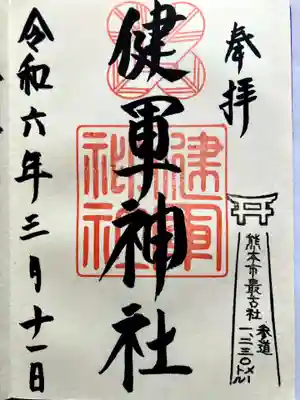 奉拝
健軍神社
健軍神社
令和六年三月十一日
熊本市最古社
参道
一、二三〇メートル